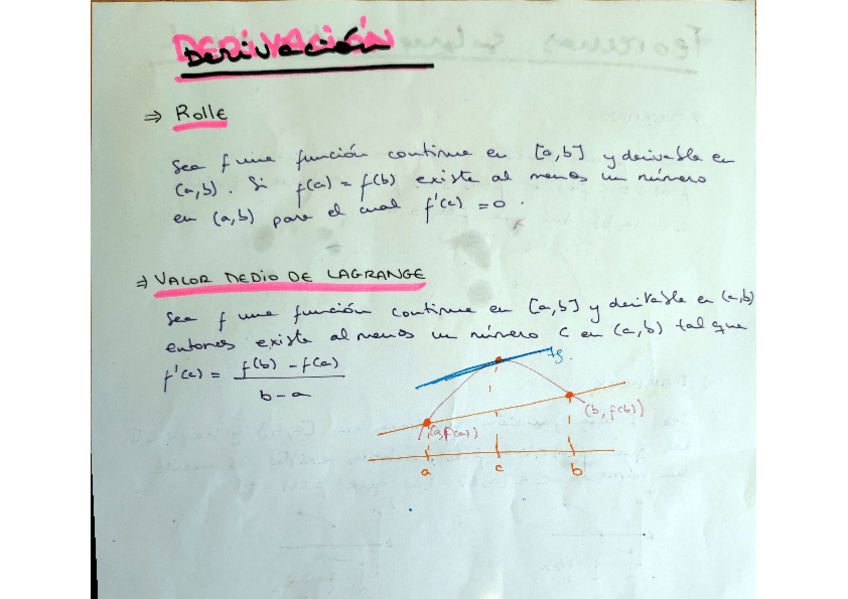 DERIVACIÓN
⇒ Rolle
Sea f una función continua en [a,b] y derivable en
(a,b). Si f(a) = f(b) existe al menos un número
en (a,b) para el cual f'(c) = 0.
⇒ VALOR MEDIO DE LAGRANGE
Sea f una función continua en [a,b] y derivable en (a,b)
entonces existe al menos un número c en (a,b) tal que
f'(c) = f(b) - f(a)
b - a
tg.
(b, f(b))
(a, f(a))
a c b